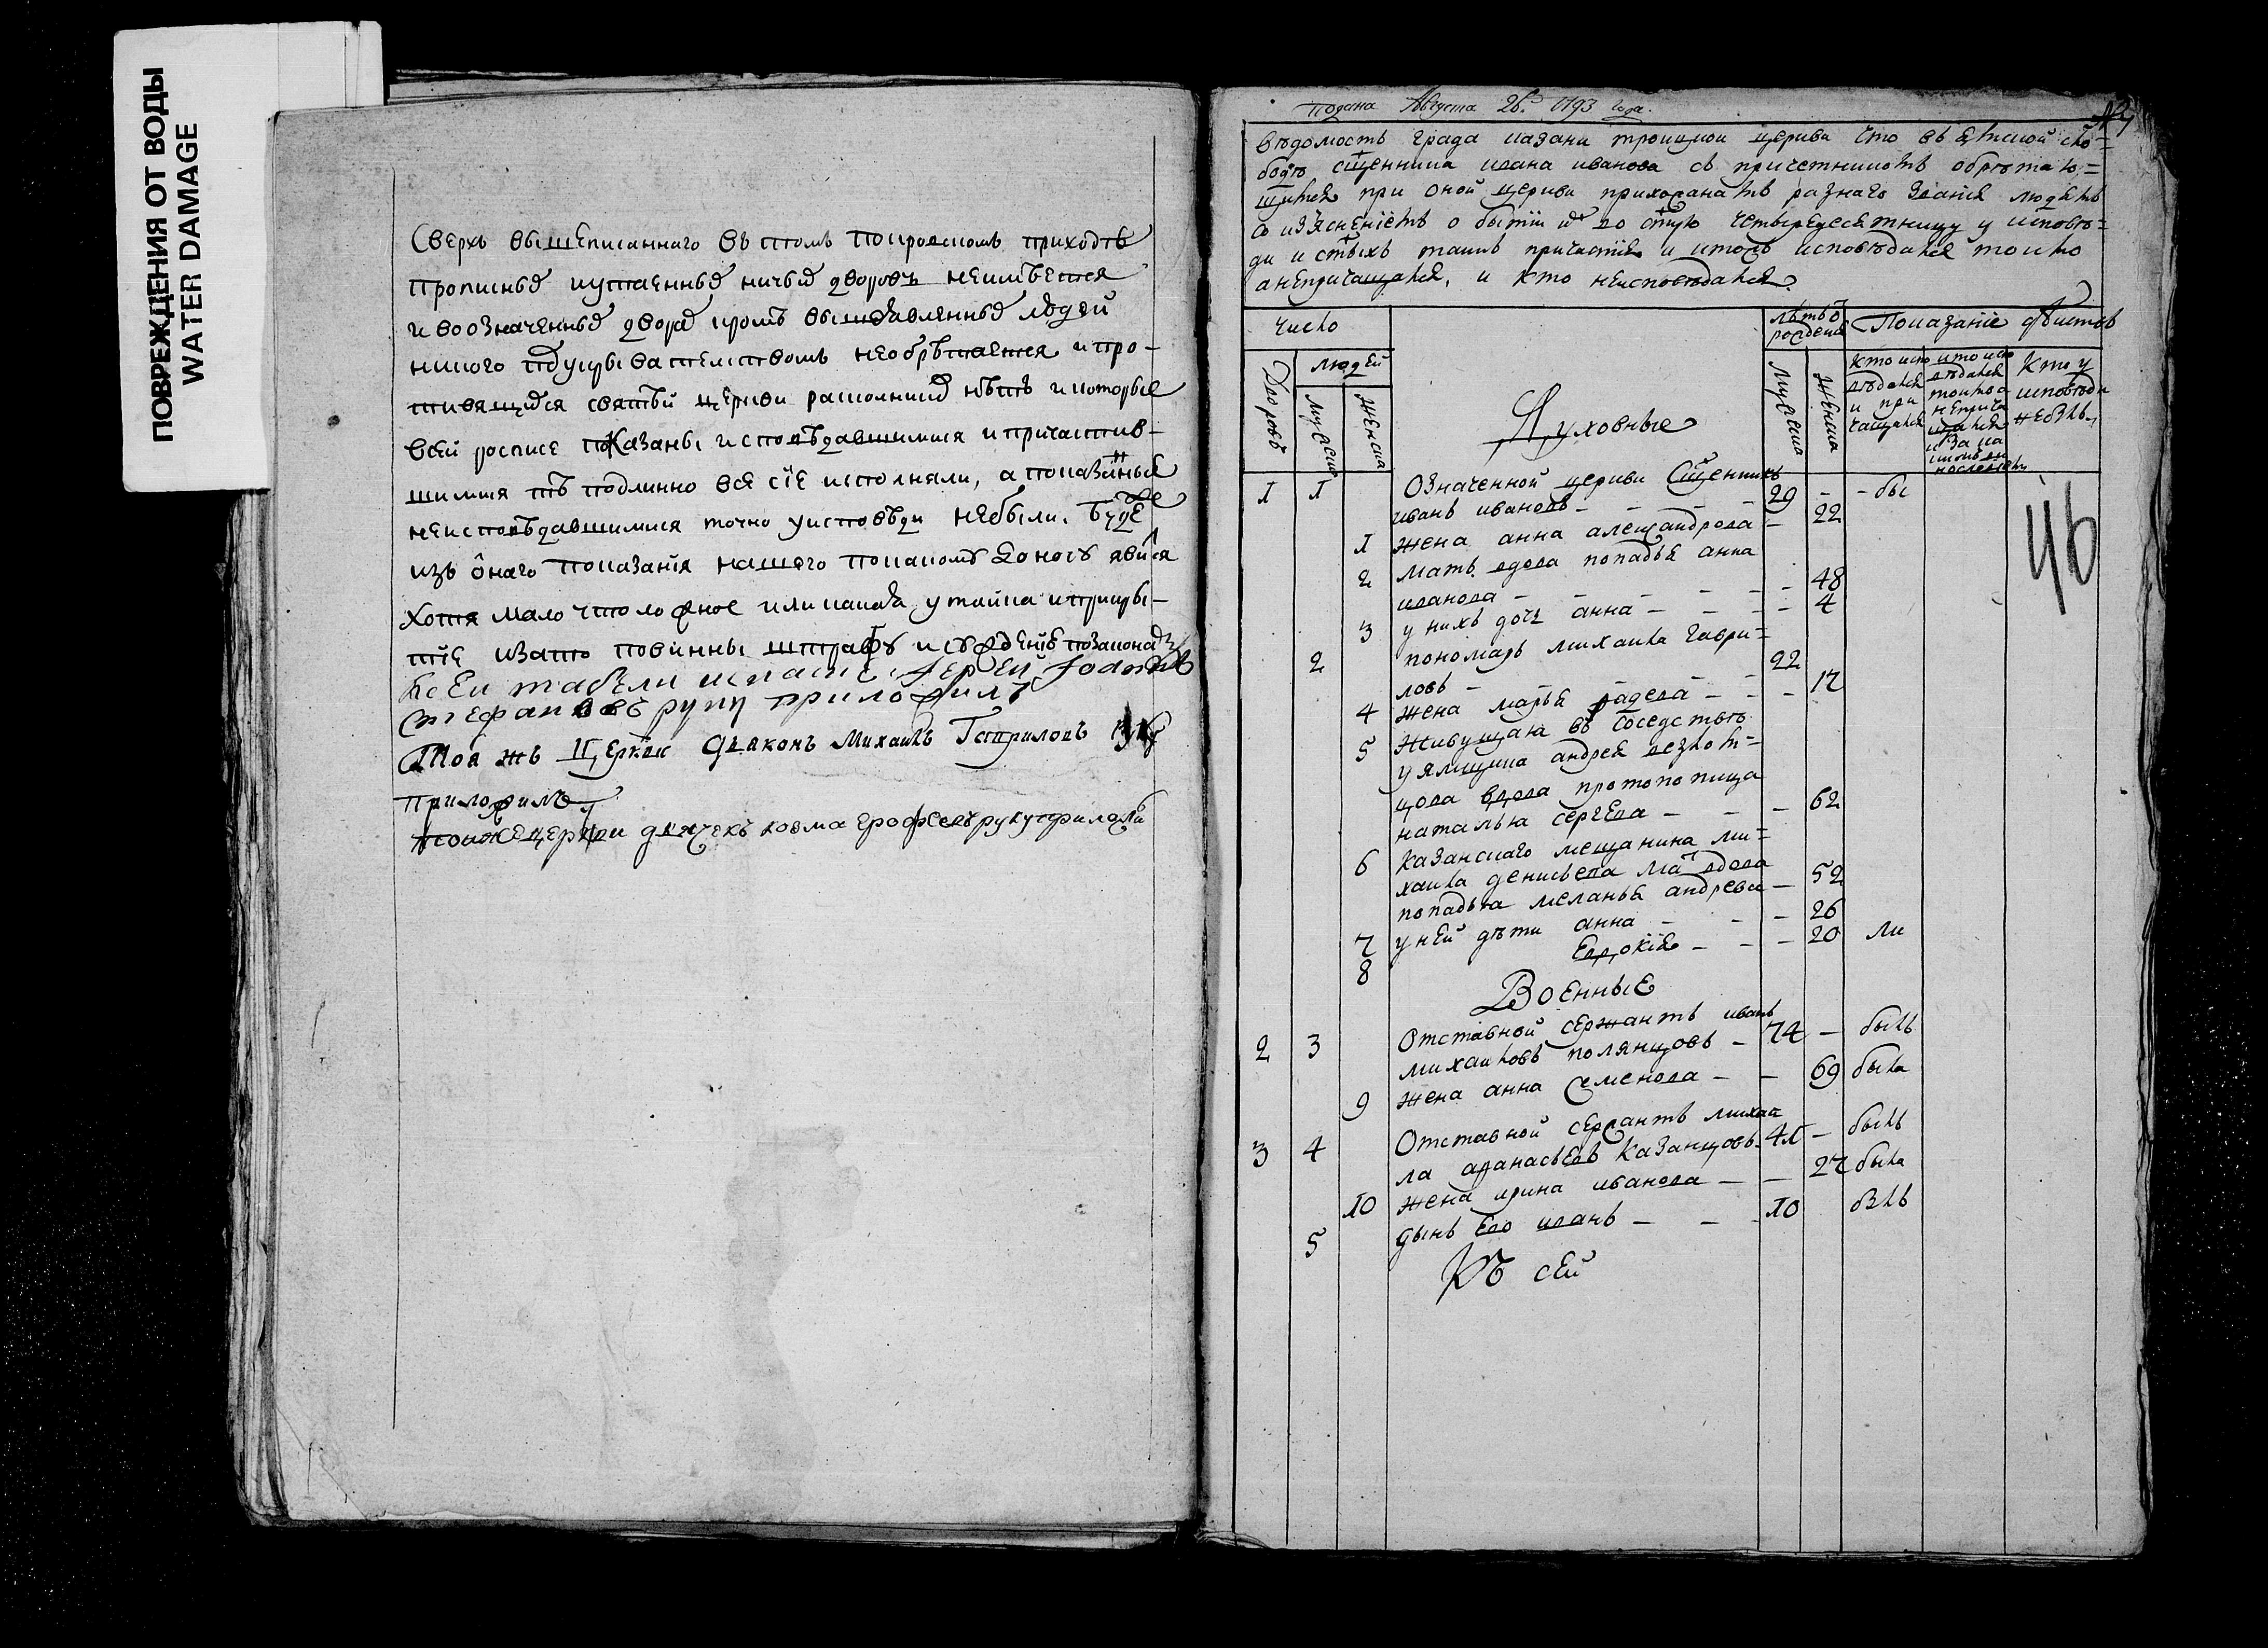 ПОВРЕЖДЕНИЯ ОТ ВОДЫ
WATER DAMAGE
Сверхъ вышеписаннаго въ томъ покровскомъ приходѣ
прописныхъ иутаенныхъ ничьихъ дворовъ неимѣется
и воозначенныхъ дворахъ кромѣ вышеявленныхъ людей
никого подукрывателствомъ необрѣтается ипро-
тивящихся святѣй церкви расколниковъ нѣтъ икоторые
всей росписе показаны исповѣдавшимися ипричастив-
шимися тѣ подлинно все сїе исполняли, а показанные
неисповѣдавшимися точно уисповѣди небыли. Буде
изъ онаго показанїя нашего покакому доносу явится
хотя мало что ложное или какая утайка иприкры-
тїе изато повинны штрафу исужденїе позаконамъ
Ксеи табели иерей
стефановъ руку приложилъ
Тоя жъ Церкви дьяконъ Михаилъ Гавриловъ руку
приложилъ
тоижецеркви дьячекъ козма ерофеевъ руку приложилъ
подана Августа 26го 1793 года.
Вѣдомость града казани троицкой церкви что въ ямской сло=
бодѣ сщенника ивана иванова съ причетникомъ обрѣтаю=
щимся при оной церкви прихожанамъ разнаго званїя людямъ
со изясненїемъ о бытїи ихъ во стую четыредесятницу у исповѣ=
ди и стыхъ таинъ причастїя и ктожъ исповѣдался токмо
а непричащался, и кто неисповѣдался.
число
лѣтъ ѿ рожденїя
Показанїе дѣйства
Дворовъ
людей
мужска
женска
мужска
женска
кто испо
вѣдался
и при
чащался
кто испо
вѣдался
токмо а
неприча
щался
и за ка
кимъ ви
нословїемъ
Кто у
исповѣди
небылъ
Духовные
1 1 Означенной церкви Сщенникъ
иванъ ивановъ — 29 — бы
1 жена анна александрова — 22
2 мать вдова попадья анна
иванова — 48
3 у нихъ дочь анна — 4
2 пономарь михаила гаври=
ловъ — 22
4 жена марья фадеева — 17
5 Живущая въ соседствѣ
у ямщика андрея
вдова протопопица
наталья сергеева — 62
6 казанскаго мещанина ми=
хаила денисьева мать вдова
попадья меланья андреева — 52
7 у ней дѣти анна — 26
8 Евдокїя — 20 ли
Военные
2 3 Отставной сержантъ иванъ
михаиловъ полянцовъ — 74 — былъ
9 жена анна семенова — 69 была
3 4 Отставной сержантъ михаи
ла афанасьевъ Казанцовъ — 41 — былъ
10 жена ирина иванова — 27 была
5 сынъ ево иванъ — 10 былъ
46
Къ сей